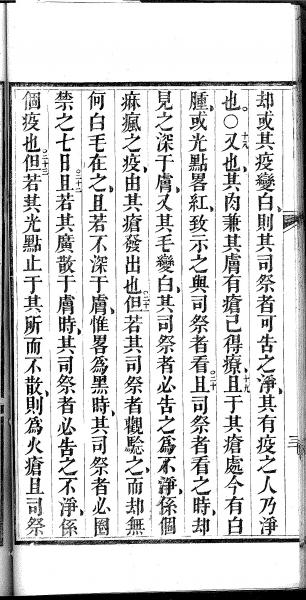 却或其疫變白則其司祭者可吿之淨其有疫之人乃淨
也○十八又也其肉兼其膚有瘡已得療十九且于其瘡處今有白
腫或光點畧紅致示之與司祭者看二十且司祭者看之時却
見之深于膚又其毛變白其司祭者必吿之爲不淨係個
痳瘋之疫由其瘡發出也二十一但若其司祭者觀騐之而却無
何白毛在之且若不深于膚惟畧爲黑時其司祭者必囹
禁之七日二十二且若其廣散于膚時其司祭者必吿之不淨係
個疫也二十三但若其光點止于其所而不散則爲火瘡且司祭
三